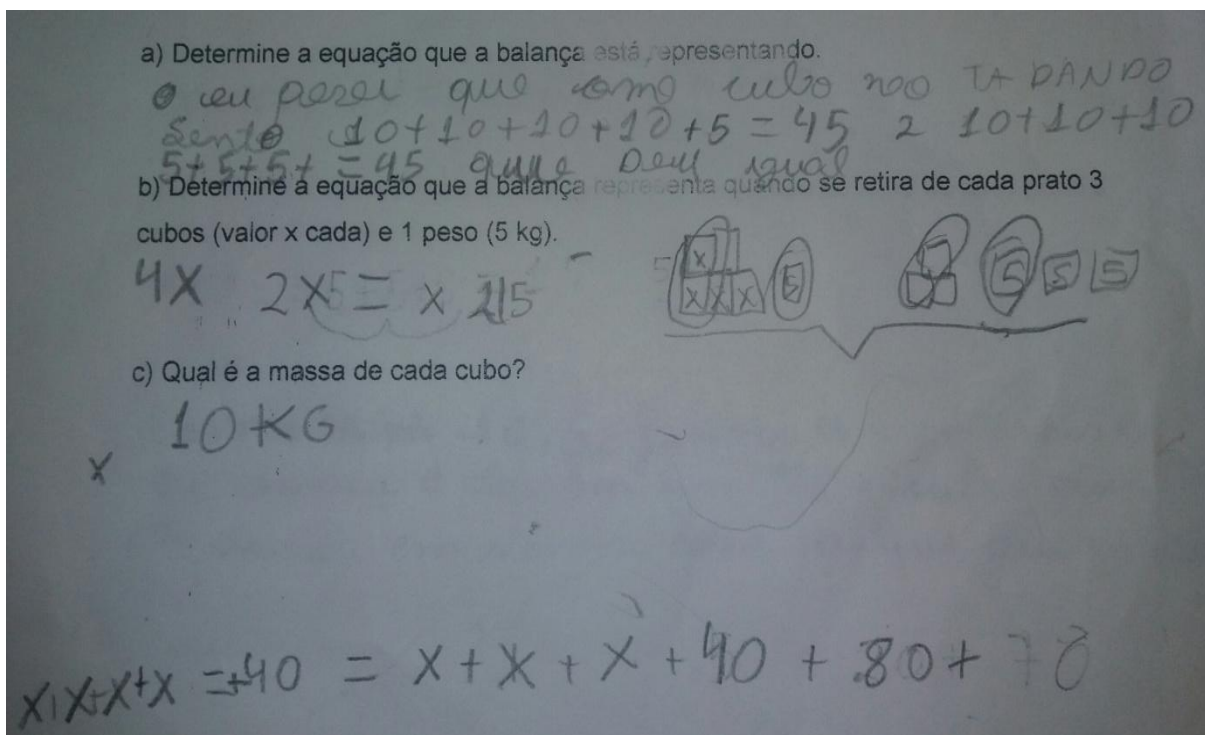 a) Determine a equação que a balança está representando.
eu pezei que como cubo noo TA DANDO
Sento 10+10+10+10+5=45 2 10+10+10
5+5+5+=45 Deu igual
b) Determine a equação que a balança representa quando se retira de cada prato 3
cubos (valor x cada) e 1 peso (5 kg).
4X 2X5= x 215
x
x x x 5 5 5 5
c) Qual é a massa de cada cubo?
10KG
x
x+x+x+x =+40 = x+x+x+40+80+70